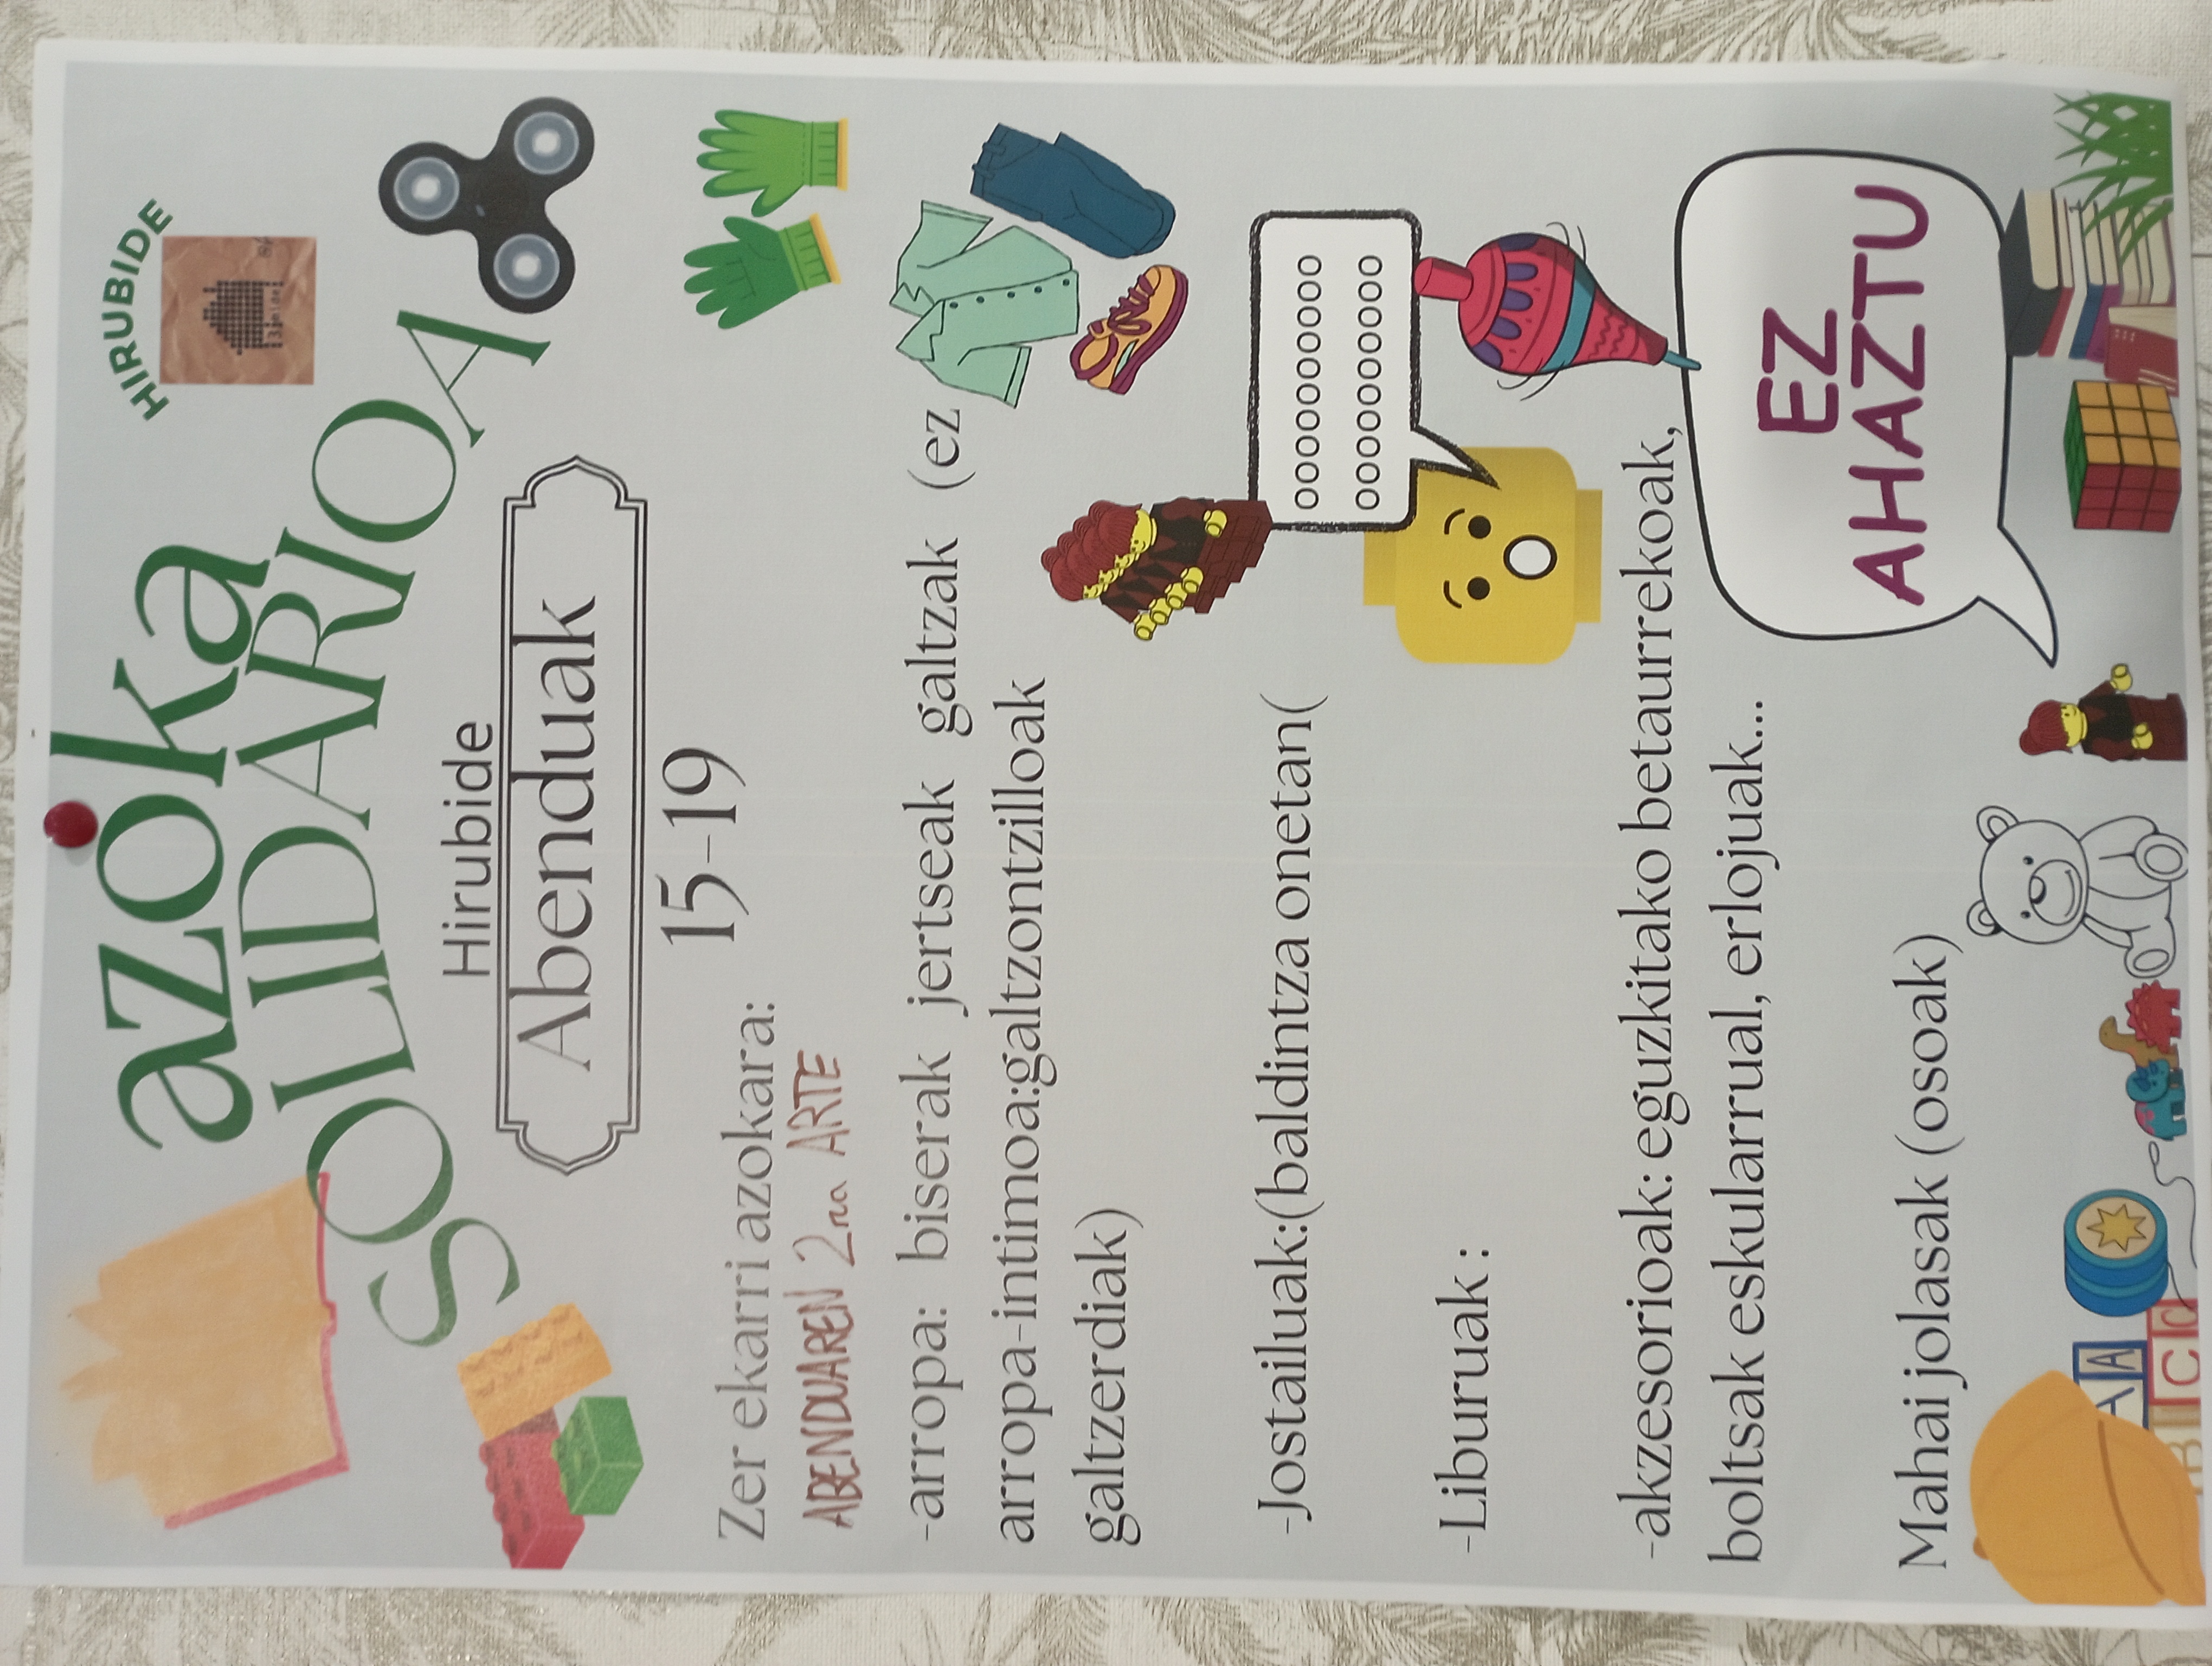 HIRUBIDE
azoka
SOLIDARIOA
Hirubide
Abenduak
15-19
Zer ekarri azokara:
ABENDUAREN 2ra ARTE
-arropa: biserak jertseak galtzak (ez
arropa-intimoa:galtzontzilloak
galtzerdiak)
-Jostailuak:(baldintza onetan(
oooooooooooo
oooooooooooo
-Liburuak :
-akzesorioak: eguzkitako betaurrekoak,
boltsak eskularrual, erlojuak...
Mahai jolasak (osoak)
EZ
AHAZTU
A A
B C d